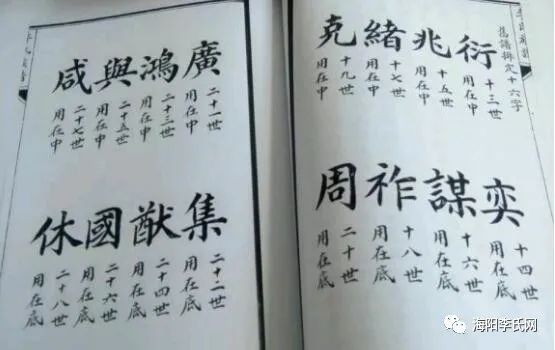 舊譜定十六字
衍
十三世
用在中
兆
十五世
用在中
緒
十七世
用在中
克
十九世
用在中
奕
十四世
用在底
謀
十六世
用在底
祚
十八世
用在底
周
二十世
用在底
廣
二十一世
用在中
鴻
二十三世
用在中
與
二十五世
用在中
咸
二十七世
用在中
集
二十二世
用在底
猷
二十四世
用在底
國
二十六世
用在底
休
二十八世
用在底
海阳李氏网